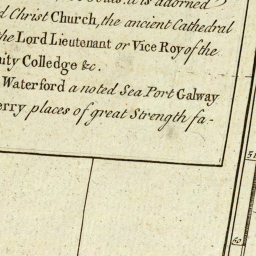 it is adorned
Christ Church, the ancient Cathedral
the Lord Lieutenant or Vice Roy of the
Colledge &c.
Waterford a noted Sea Port Galway
places of great Strength fa-
51